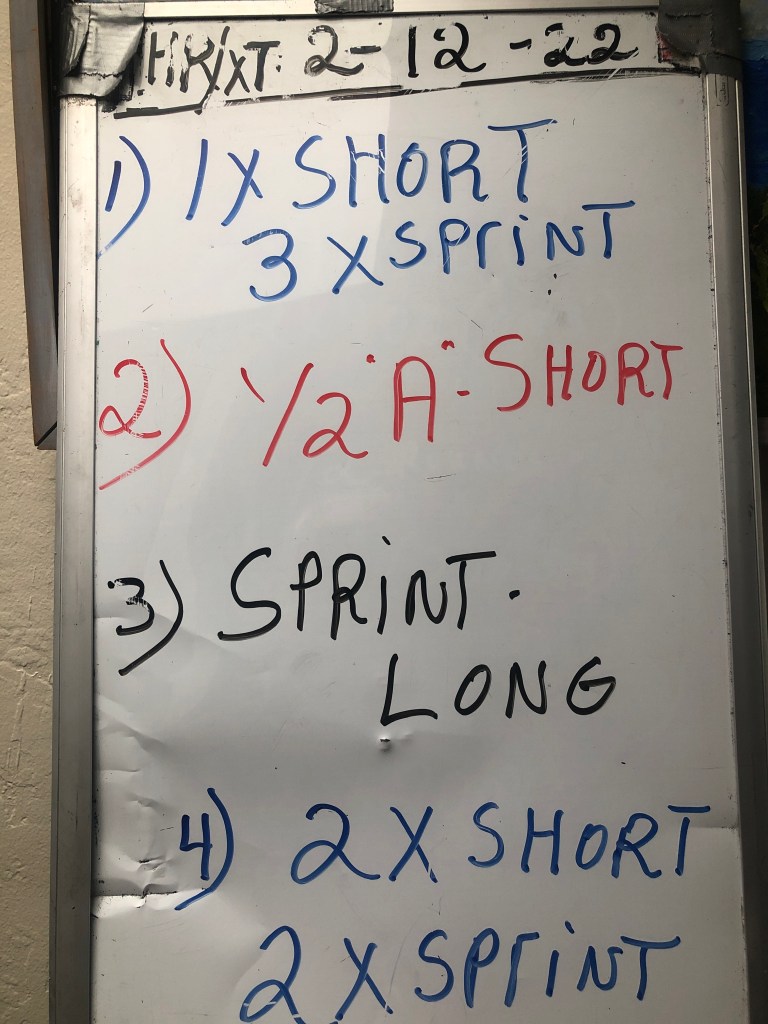 HR/XT: 2-12-22
1) 1X SHORT
3 X SPRINT
2) 1/2 "A"- SHORT
3) SPRINT.
LONG
4) 2X SHORT
2 X SPRINT